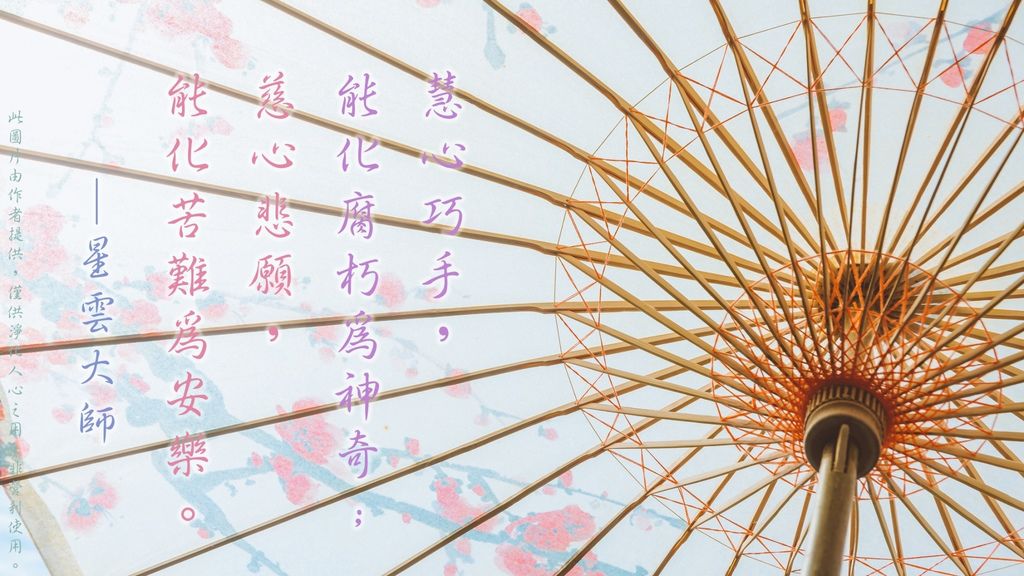 慧心巧手，
能化腐朽為神奇；
慈心悲願，
能化苦難為安樂。
——星雲大師
此圖片由作者提供，僅供淨化人心之用，非營利使用。